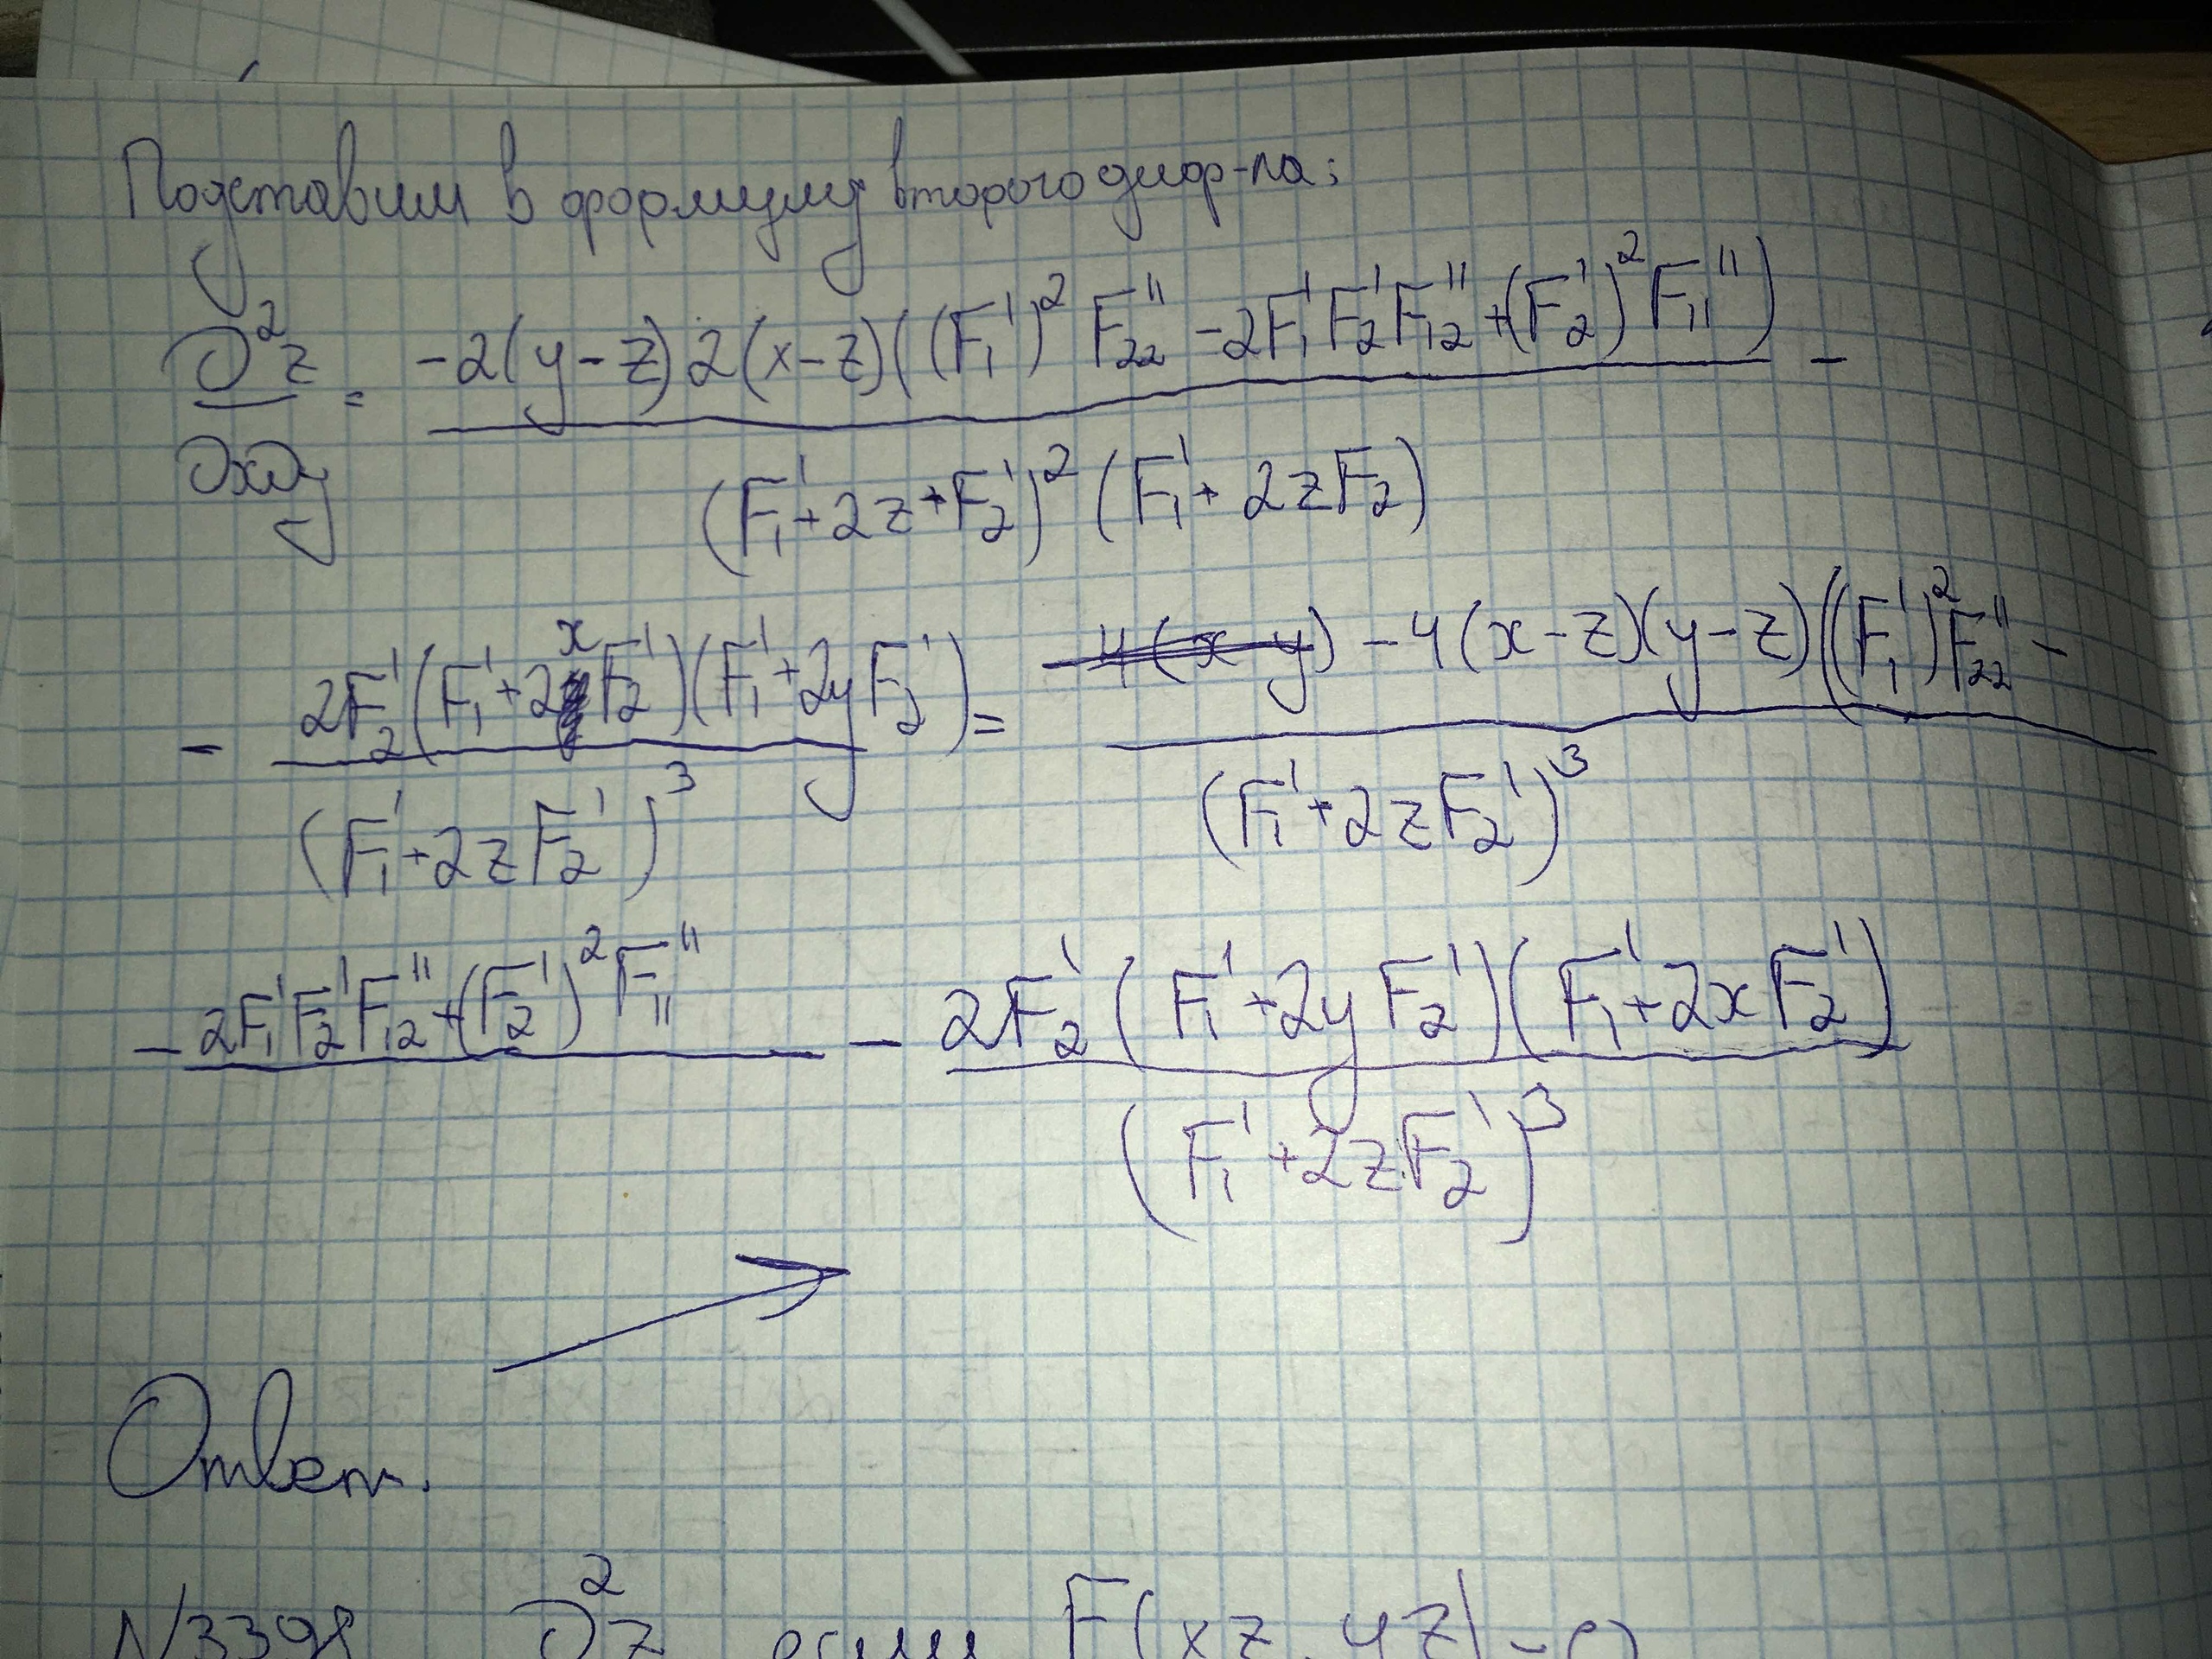 Подставим в формулу второго диф-ла:
∂²z/∂x∂y = (-2(y-z)2(x-z)((F₁')²F₂₂'' -2F₁'F₂'F₁₂''+(F₂')²F₁₁''))/((F₁'+2z+F₂')²(F₁'+2zF₂)) -
- (2F₂'(F₁'+2xF₂')(F₁'+2yF₂'))/(F₁'+2zF₂')³ = (4(x-y) -4(x-z)(y-z)((F₁')²F₂₂'' -)/(F₁'+2zF₂')³
- 2F₁'F₂'F₁₂''+(F₂')²F₁₁'' - (2F₂'(F₁'+2yF₂')(F₁'+2xF₂'))/(F₁'+2zF₂')³
Ответ.
N3398 ∂²z если F(xz, yz)=0